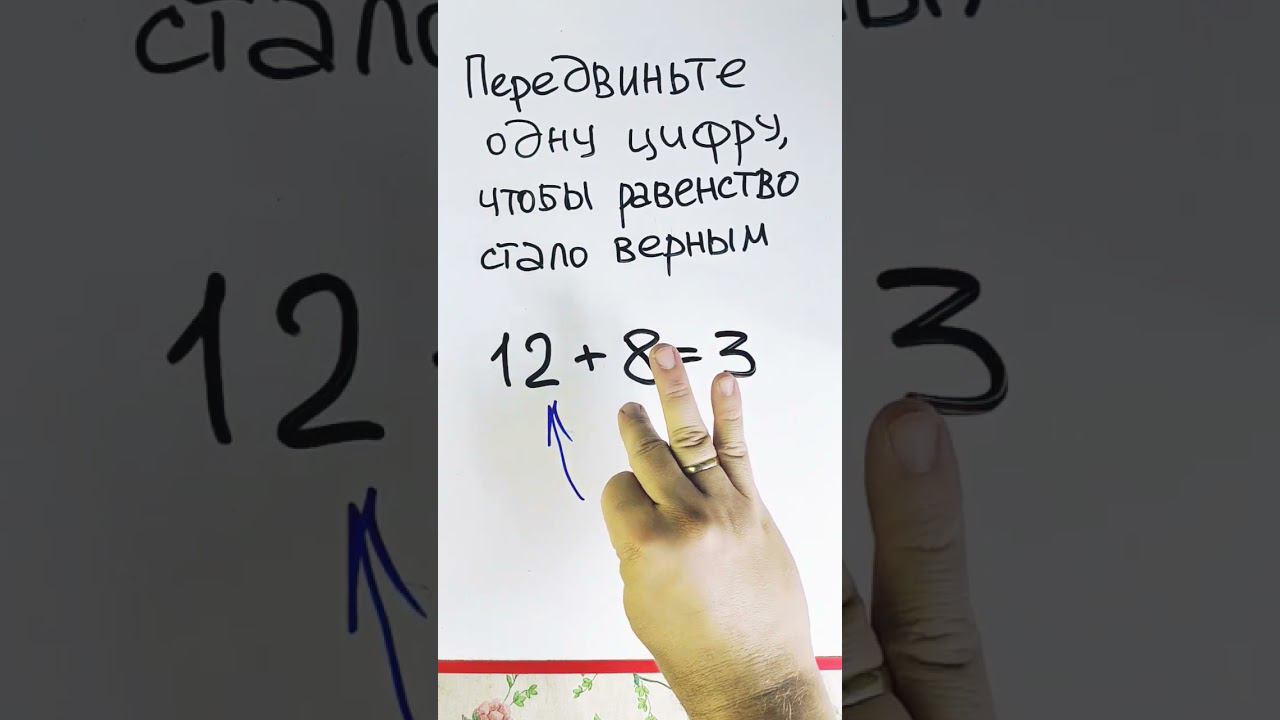 Передвиньте
одну цифру,
чтобы равенство
стало верным
12 + 8 = 3